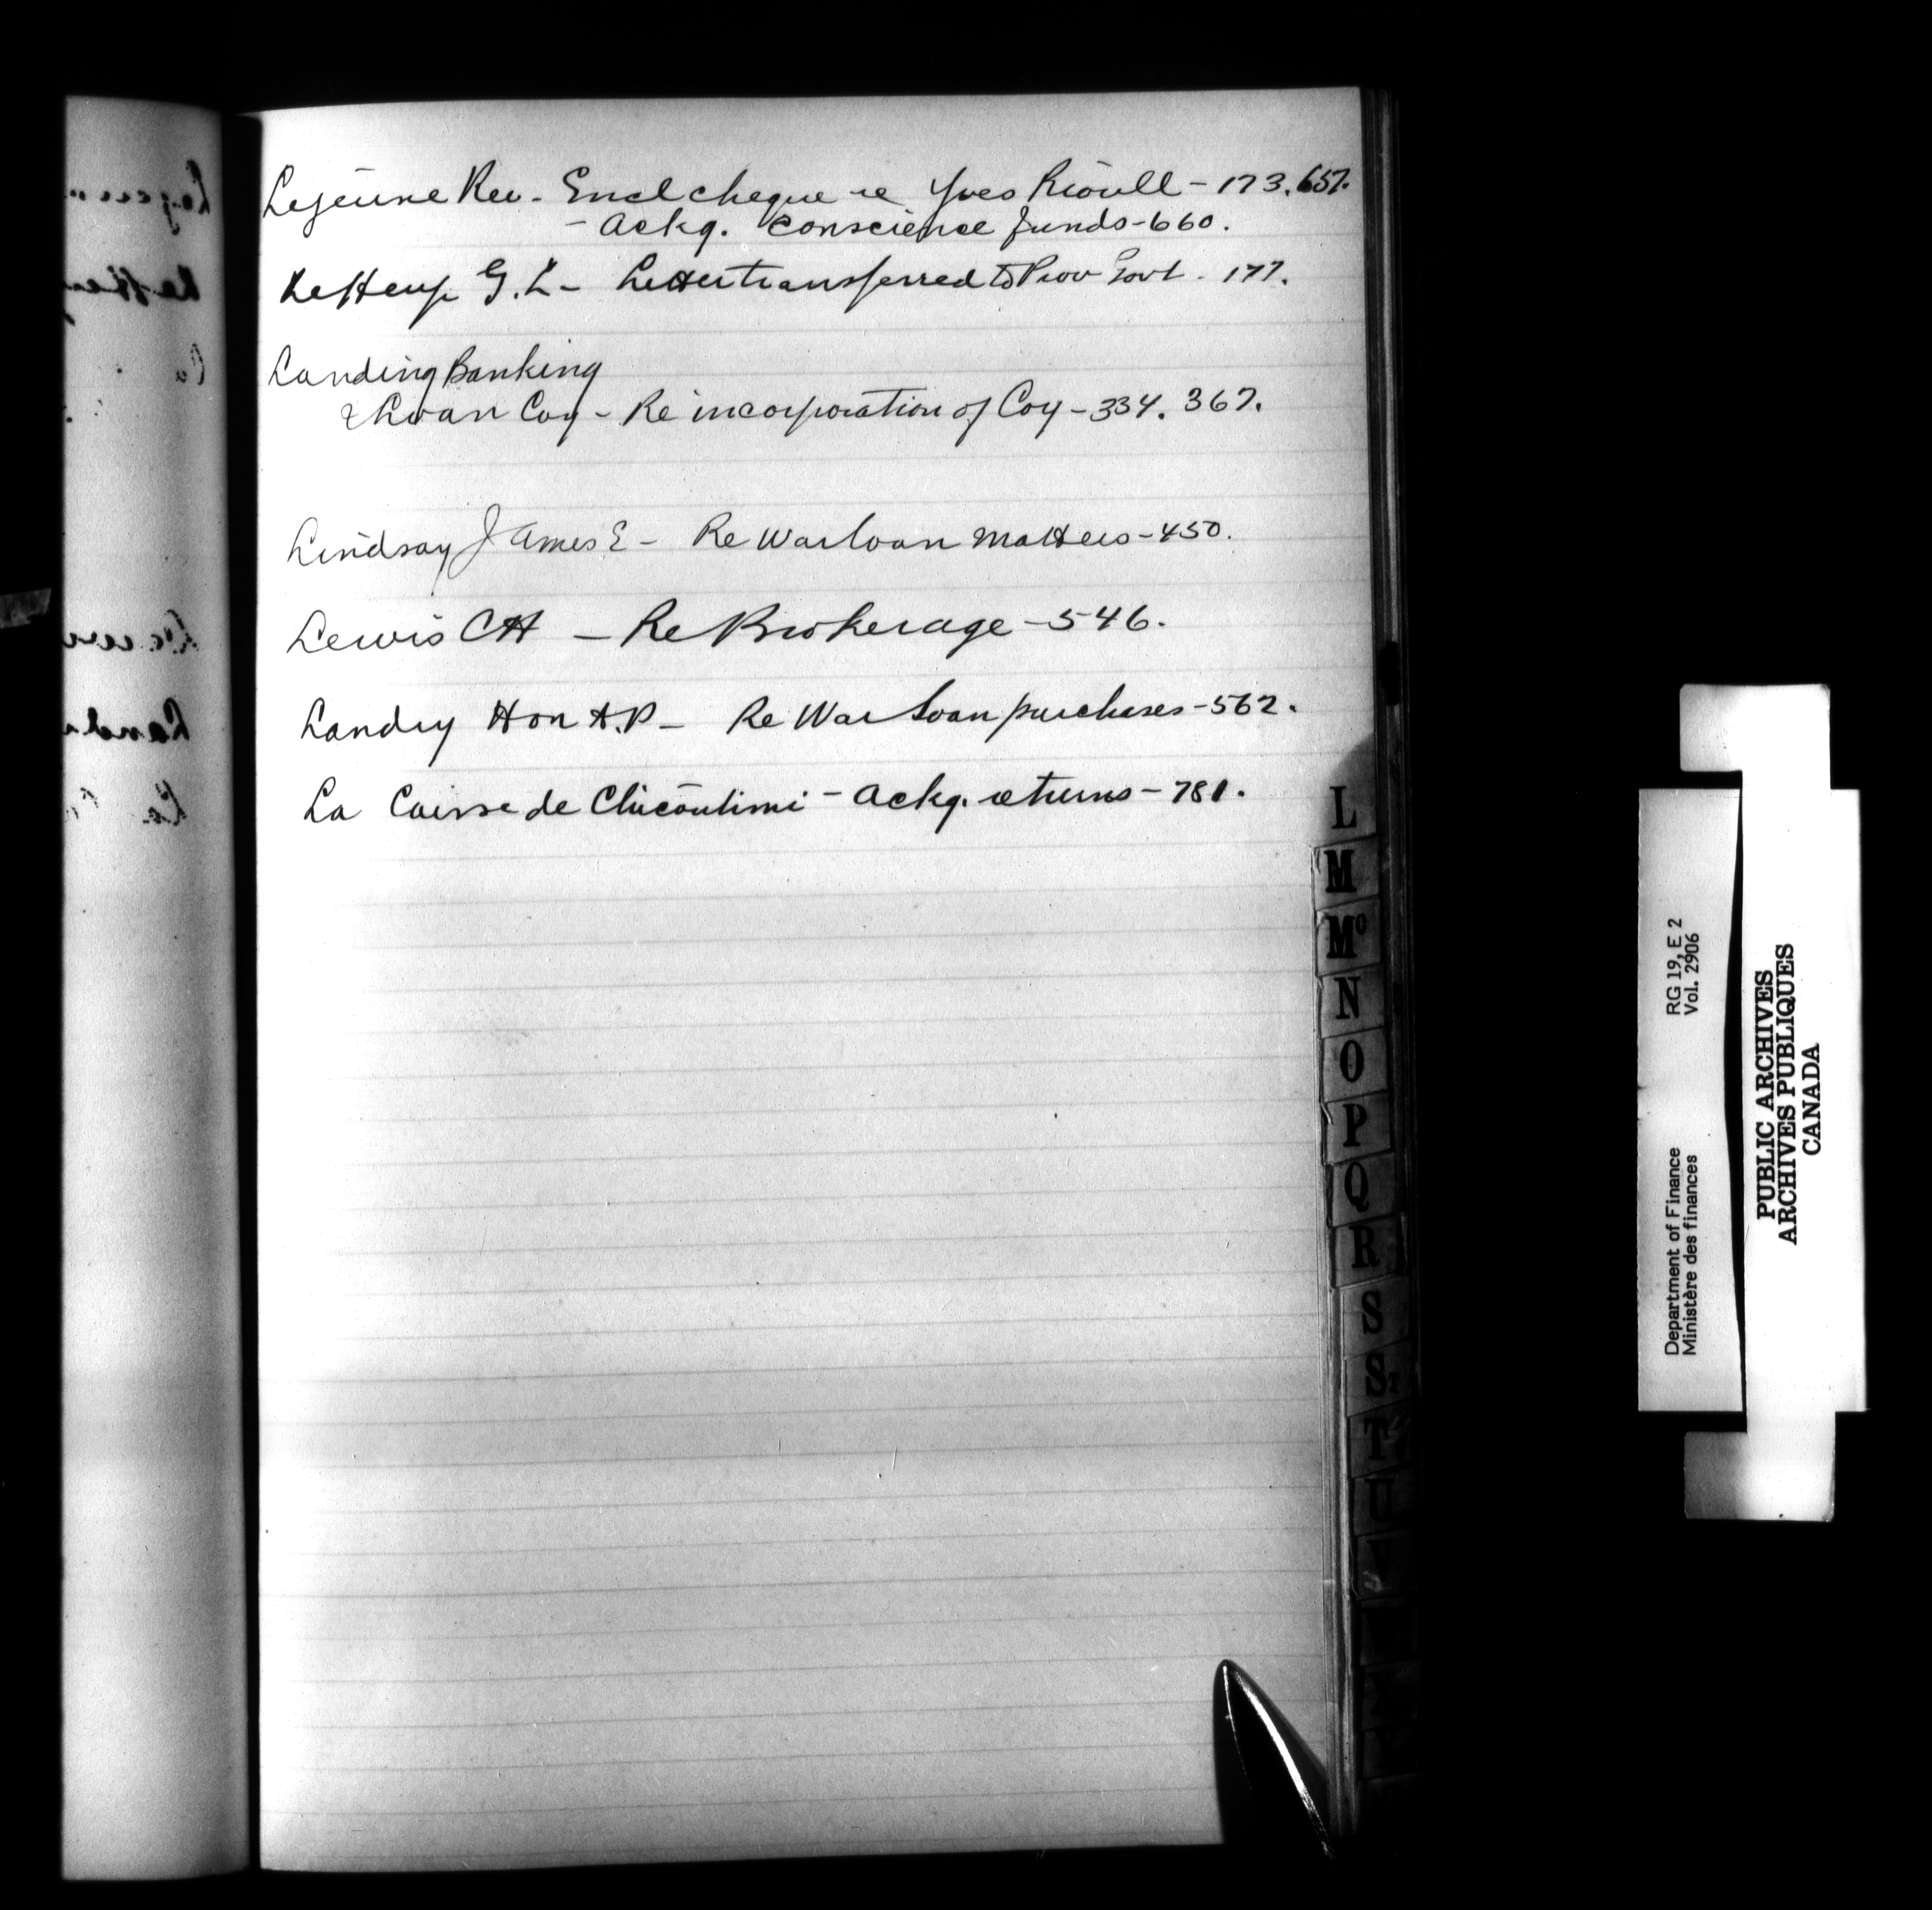 Lejeune Rev. - Encl cheque re Yves Rioull - 173. 657.
- Ackg. conscience funds - 660.
G. L - Letter transferred to Prov Govt - 177.
Landing Banking
& Loan Coy - Re incorporation of Coy - 334. 367.
Lindsay James E - Re War Loan Matters - 450.
Lewis CH - Re Brokerage - 546.
Landry Hon A.P - Re War Loan purchases - 562.
La Caisse de Chicoutimi - Ackg. returns - 781.
L
M
Mc
N
O
P
Q
R
S
S
T
U
V
RG 19, E 2
Vol. 2906
Department of Finance
Ministère des finances
PUBLIC ARCHIVES
ARCHIVES PUBLIQUES
CANADA